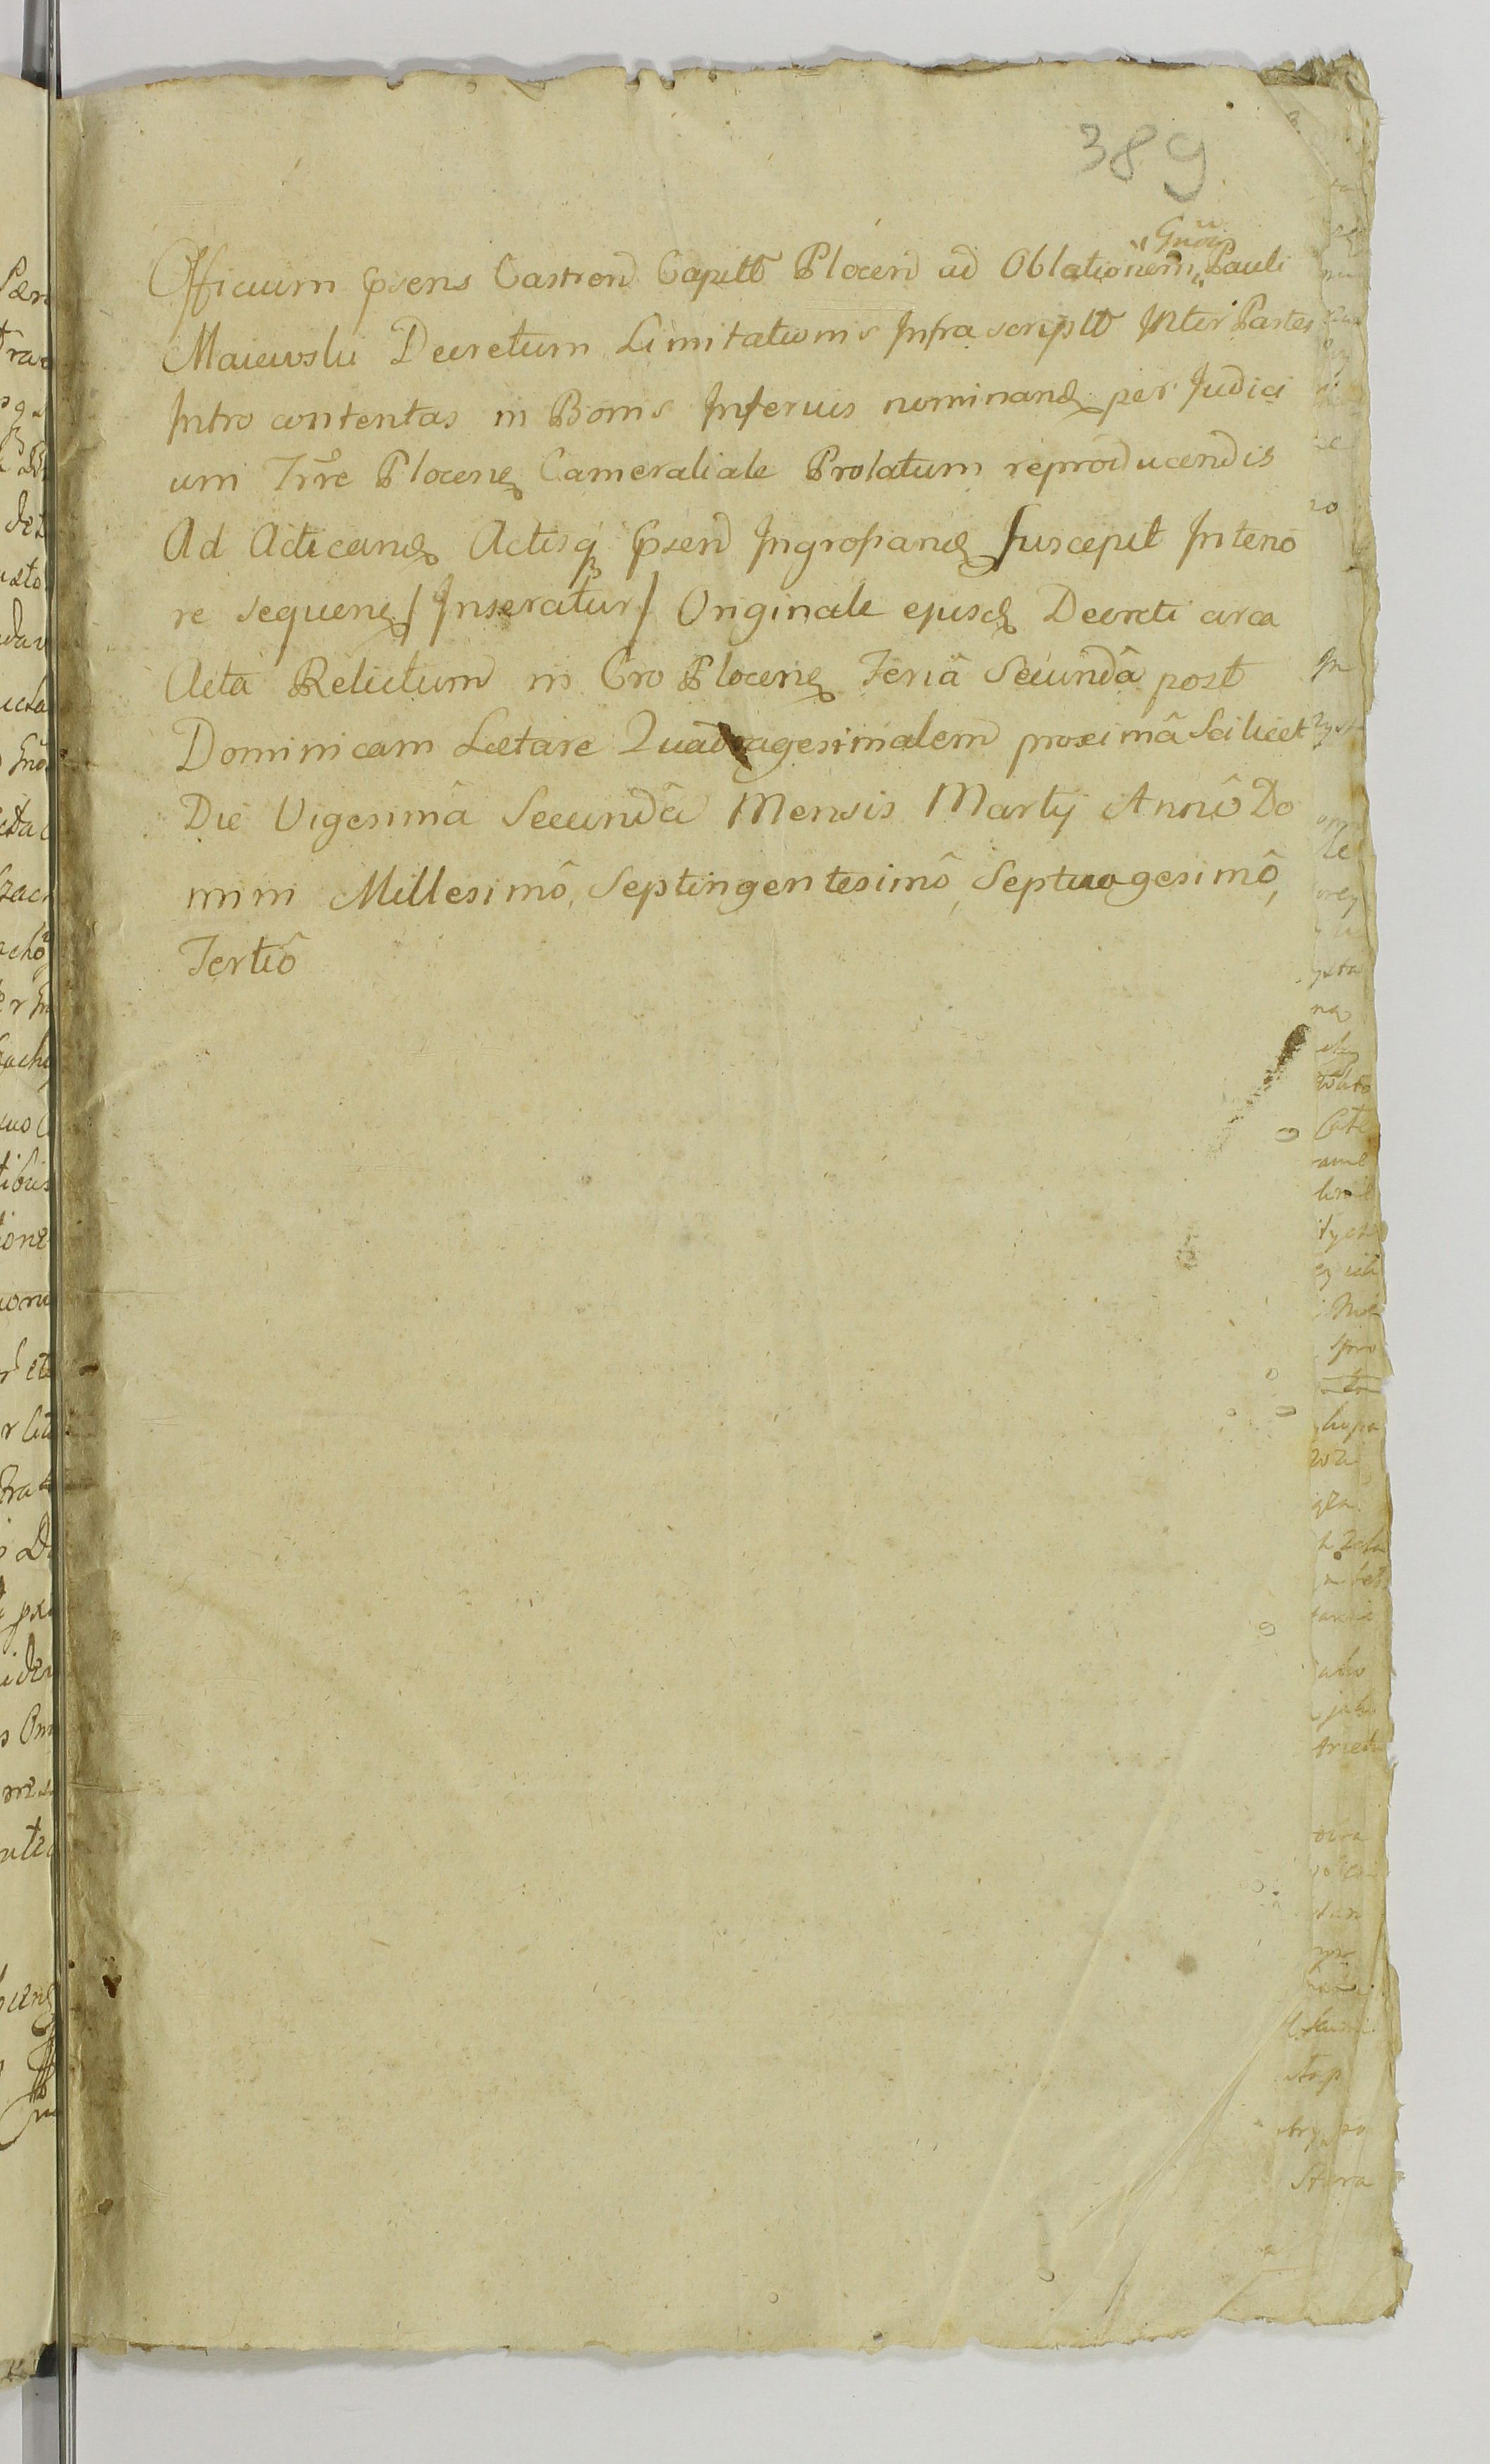 389
Officium pñens Castren Capitt Plocen ad Oblationem Gnosi Pauli
Maiewski Decretum Limitationis Infrascriptt Inter Partes
Intro contentas in Bonis Inferius nominand per Judici
um Trre Plocens Cameraliale Prolatum reproducendis
Ad Acticand Actisq pñen Ingrossand suscepit In teno
re sequens / Inseratur / Originale ejusd Decreti circa
Acta Relictum in Cro Plocens Feriâ Secundâ post
Dominicam Laetare Quadragesimalem proximâ Scilicet
Die Vigesimâ Secundâ Mensis Martij Annô Do
mini Millesimô, Septingentesimô, Septuagesimô,
Tertiô